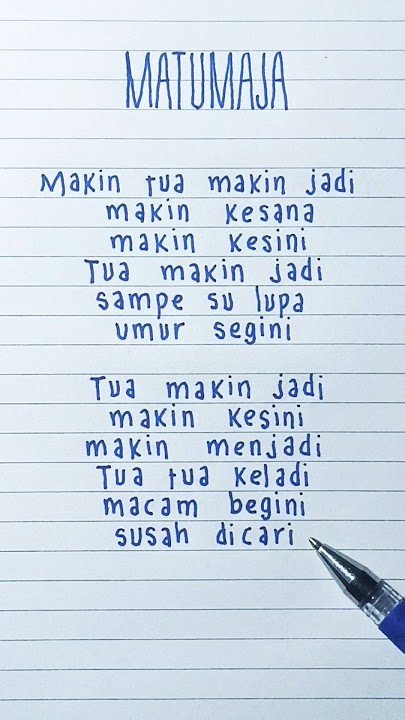 MATUMAJA
Makin tua makin jadi
makin kesana
makin kesini
Tua makin jadi
sampe su lupa
umur segini
Tua makin jadi
makin kesini
makin menjadi
Tua tua keladi
macam begini
susah dicari